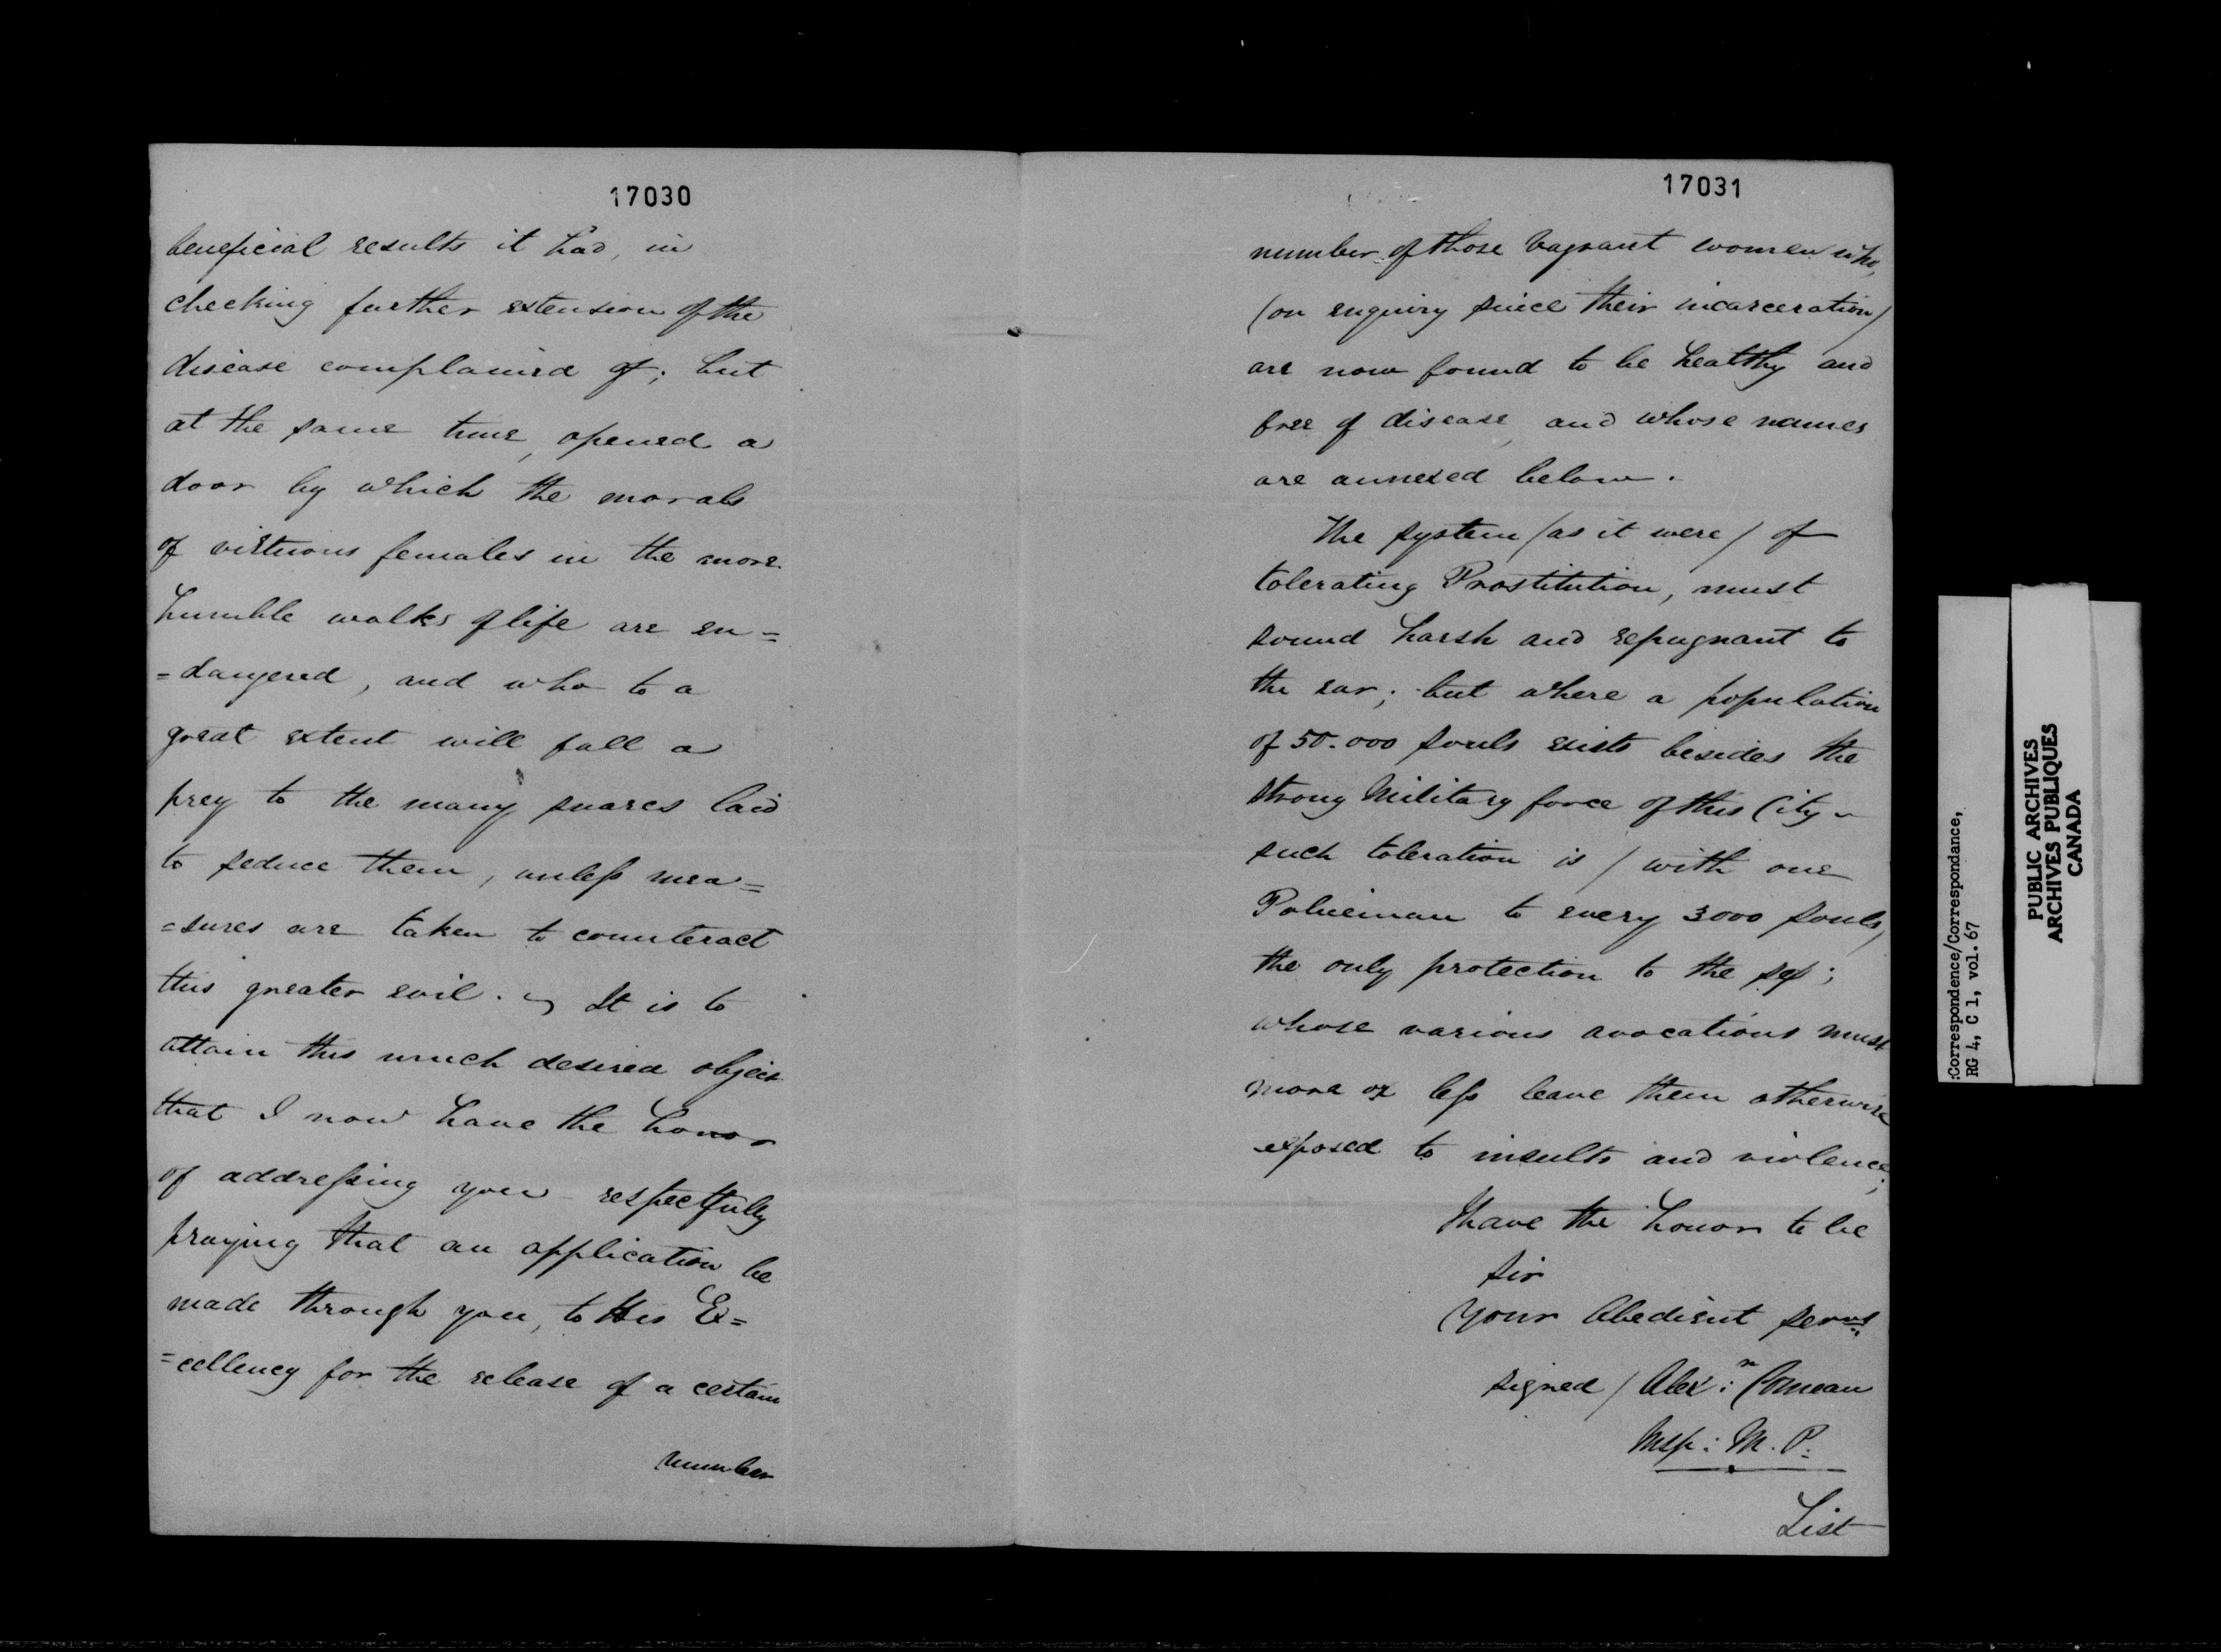 17030
beneficial results it had, in
checking further extension of the
disease complained of; but
at the same time, opened a
door by which the morals
of virtuous females in the more
humble walks of life are en=
=dangered, and who to a
great extent will fall a
prey to the many snares laid
to seduce them, unless mea=
=sures are taken to counteract
this greater evil. It is to
attain this much desired object
that I now have the honor
of addressing you respectfully
praying that an application be
made through you, to His Ex=
=cellency for the release of a certain
number
17031
number of those Vagrant women who,
(on enquiry since their incarceration)
are now found to be healthy and
free of disease, and whose names
are annexed below.
The system /as it were/ of
tolerating Prostitution, must
sound harsh and repugnant to
the ear; but where a population
of 50.000 souls exists besides the
strong Military force of this City
such toleration is / with one
Policeman to every 3000 souls,
the only protection to the sex;
whose various avocations must
more or less leave them otherwise
exposed to insults and violence;
I have the honor to be
Sir
Your Obedient Servt.
signed / Alex:n Comeau
Insp: M. P.
List
:Correspondence/Correspondance,
RG 4, C 1, vol. 67
PUBLIC ARCHIVES
ARCHIVES PUBLIQUES
CANADA